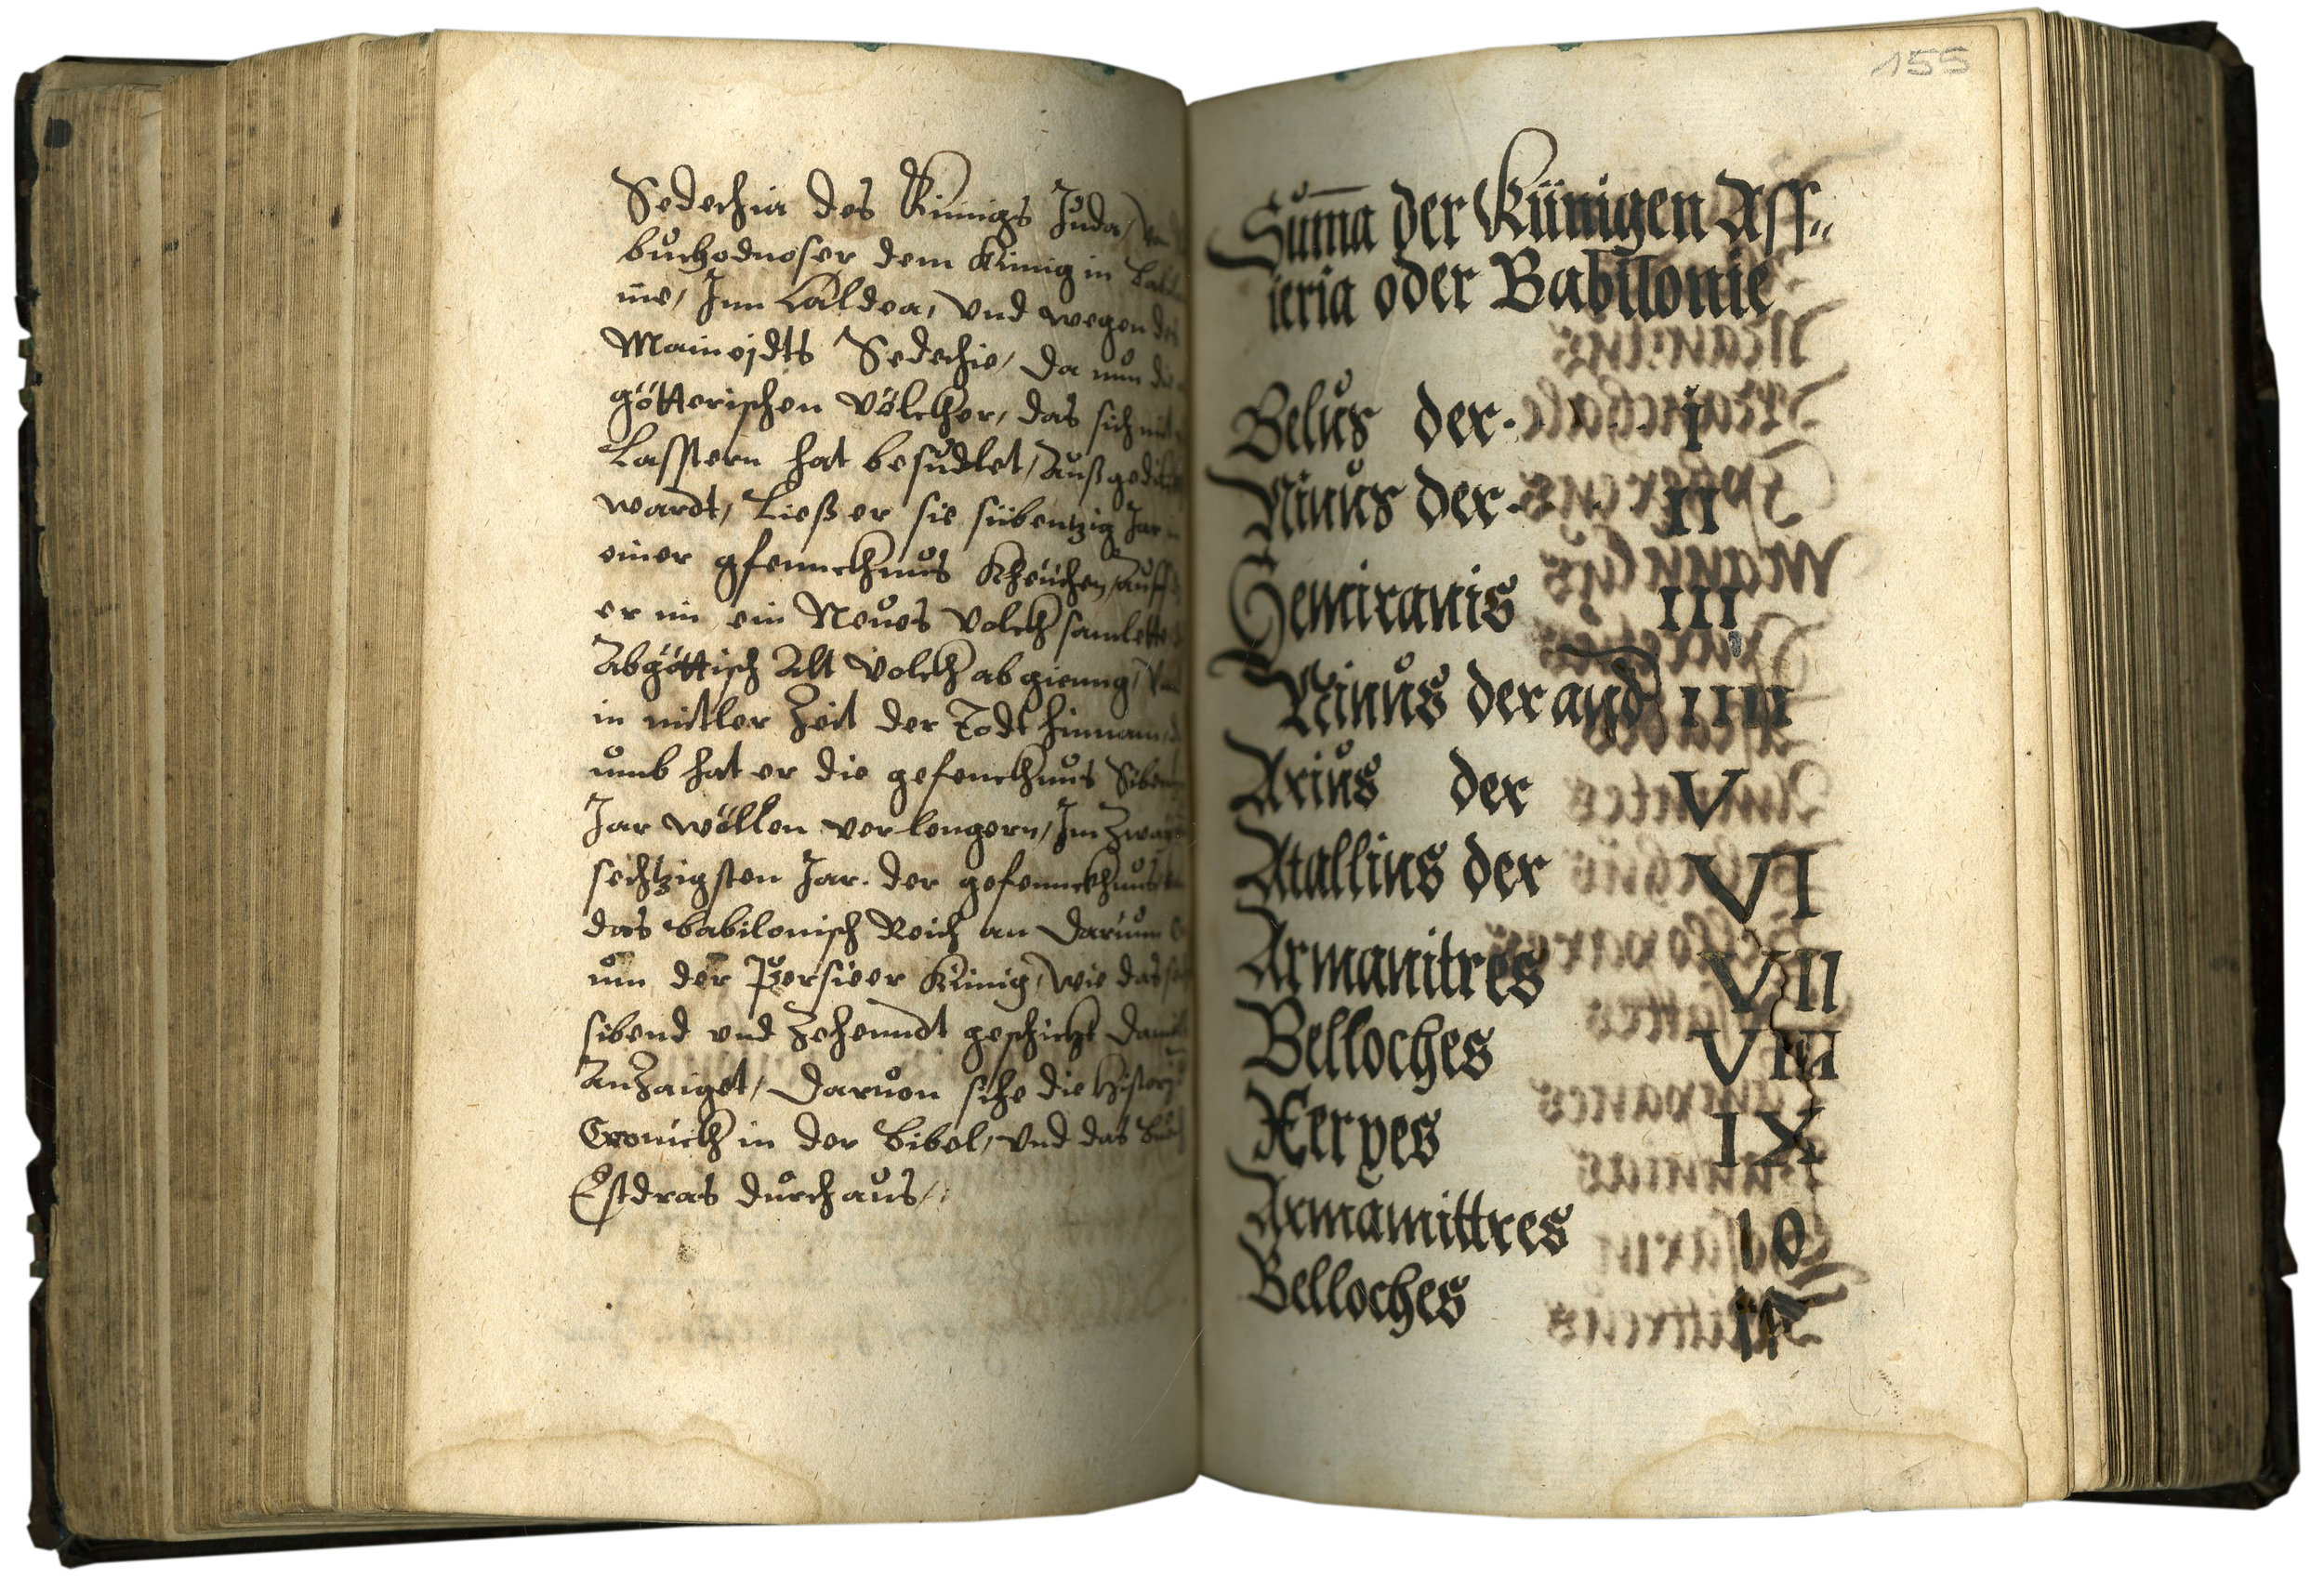 Sedechia des Künigs Juda,
buchodnoser dem Künig in
nie, Jnn Caldea, vnd wegen des
Maineydts Sedechie, da nun die
götterischen Völckher, das sich mit
Lasstern hat besudlet, Außged
wardt, Ließ er sie sübentzig Jar in
einer gfennckhnus Kheüchen, Auff
er im ein Neues Volckh samlette
Abgöttisch Alt Volckh abgieng,
in mitler Zeit der Todt hinnam,
umb hat er die gefenckhnus Siben
Jar wöllen verlengern, Im Zway
sechtzigsten Jar der gefennckhnus
das babilonisch Reich an Darium
um der Persieer Künig, wie das
sibend vnd Zehenndt geschicht Danie
Anzaiget, Daruon sihe die Histori
Cronickh in der Bibel, vnd das Buch
Estdras durchaus,
155
Suma der Künigen Ass„
ieria oder Babilonie
Belus der I
Ninus der II
Semiranis III
Ninus der and IIII
Arius der V
Atallius der VI
Armanitres VII
Belloches VIII
Xerpes IX
Armamittres 10
Belloches 11